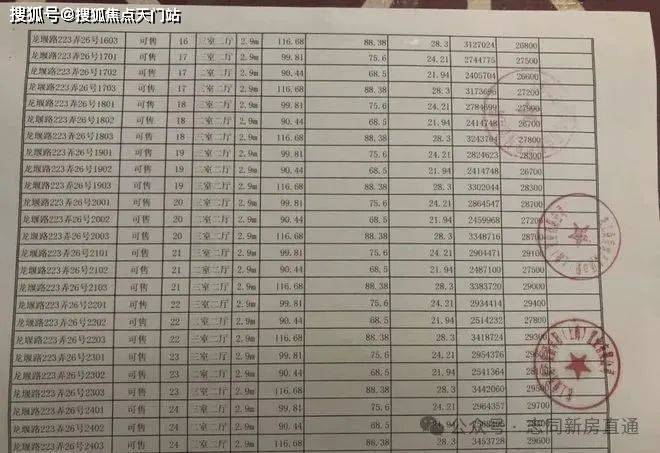 搜狐号@搜狐焦点天门站
龙堰路223弄26号1603 可售 16 三室二厅 2.9m 116.68 88.38 28.3 3127024 26800
龙堰路223弄26号1701 可售 17 三室二厅 2.9m 99.81 75.6 24.21 2744775 27500
龙堰路223弄26号1702 可售 17 三室二厅 2.9m 90.44 68.5 21.94 2405704 26600
龙堰路223弄26号1703 可售 17 三室二厅 2.9m 116.68 88.38 28.3 3173696 27200
龙堰路223弄26号1801 可售 18 三室二厅 2.9m 99.81 75.6 24.21 2784699 27900
龙堰路223弄26号1802 可售 18 三室二厅 2.9m 90.44 68.5 21.94 2414748 26700
龙堰路223弄26号1803 可售 18 三室二厅 2.9m 116.68 88.38 28.3 3243704 27800
龙堰路223弄26号1901 可售 19 三室二厅 2.9m 99.81 75.6 24.21 2824623 28300
龙堰路223弄26号1902 可售 19 三室二厅 2.9m 90.44 68.5 21.94 2414748 26700
龙堰路223弄26号1903 可售 19 三室二厅 2.9m 116.68 88.38 28.3 3302044 28300
龙堰路223弄26号2001 可售 20 三室二厅 2.9m 99.81 75.6 24.21 2864547 28700
龙堰路223弄26号2002 可售 20 三室二厅 2.9m 90.44 68.5 21.94 2459968 27200
龙堰路223弄26号2003 可售 20 三室二厅 2.9m 116.68 88.38 28.3 3348716 28700
龙堰路223弄26号2101 可售 21 三室二厅 2.9m 99.81 75.6 24.21 2904471 29100
龙堰路223弄26号2102 可售 21 三室二厅 2.9m 90.44 68.5 21.94 2487100 27500
龙堰路223弄26号2103 可售 21 三室二厅 2.9m 116.68 88.38 28.3 3383720 29000
龙堰路223弄26号2201 可售 22 三室二厅 2.9m 99.81 75.6 24.21 2934414 29400
龙堰路223弄26号2202 可售 22 三室二厅 2.9m 90.44 68.5 21.94 2514232 27800
龙堰路223弄26号2203 可售 22 三室二厅 2.9m 116.68 88.38 28.3 3418724 29300
龙堰路223弄26号2301 可售 23 三室二厅 2.9m 99.81 75.6 24.21 2954376
龙堰路223弄26号2302 可售 23 三室二厅 2.9m 90.44 68.5 21.94 2541364
龙堰路223弄26号2303 可售 23 三室二厅 2.9m 116.68 88.38 28.3 3442060
龙堰路223弄26号2401 可售 24 三室二厅 2.9m 99.81 75.6 24.21 2964357 29700
龙堰路223弄26号2402 可售 24 三室二厅 2.9m 90.44 68.5
龙堰路223弄26号2403 可售 24 三室二厅 2.9m 116.68 88.38 28.3 3453728 29600
公众号·志同新房直通